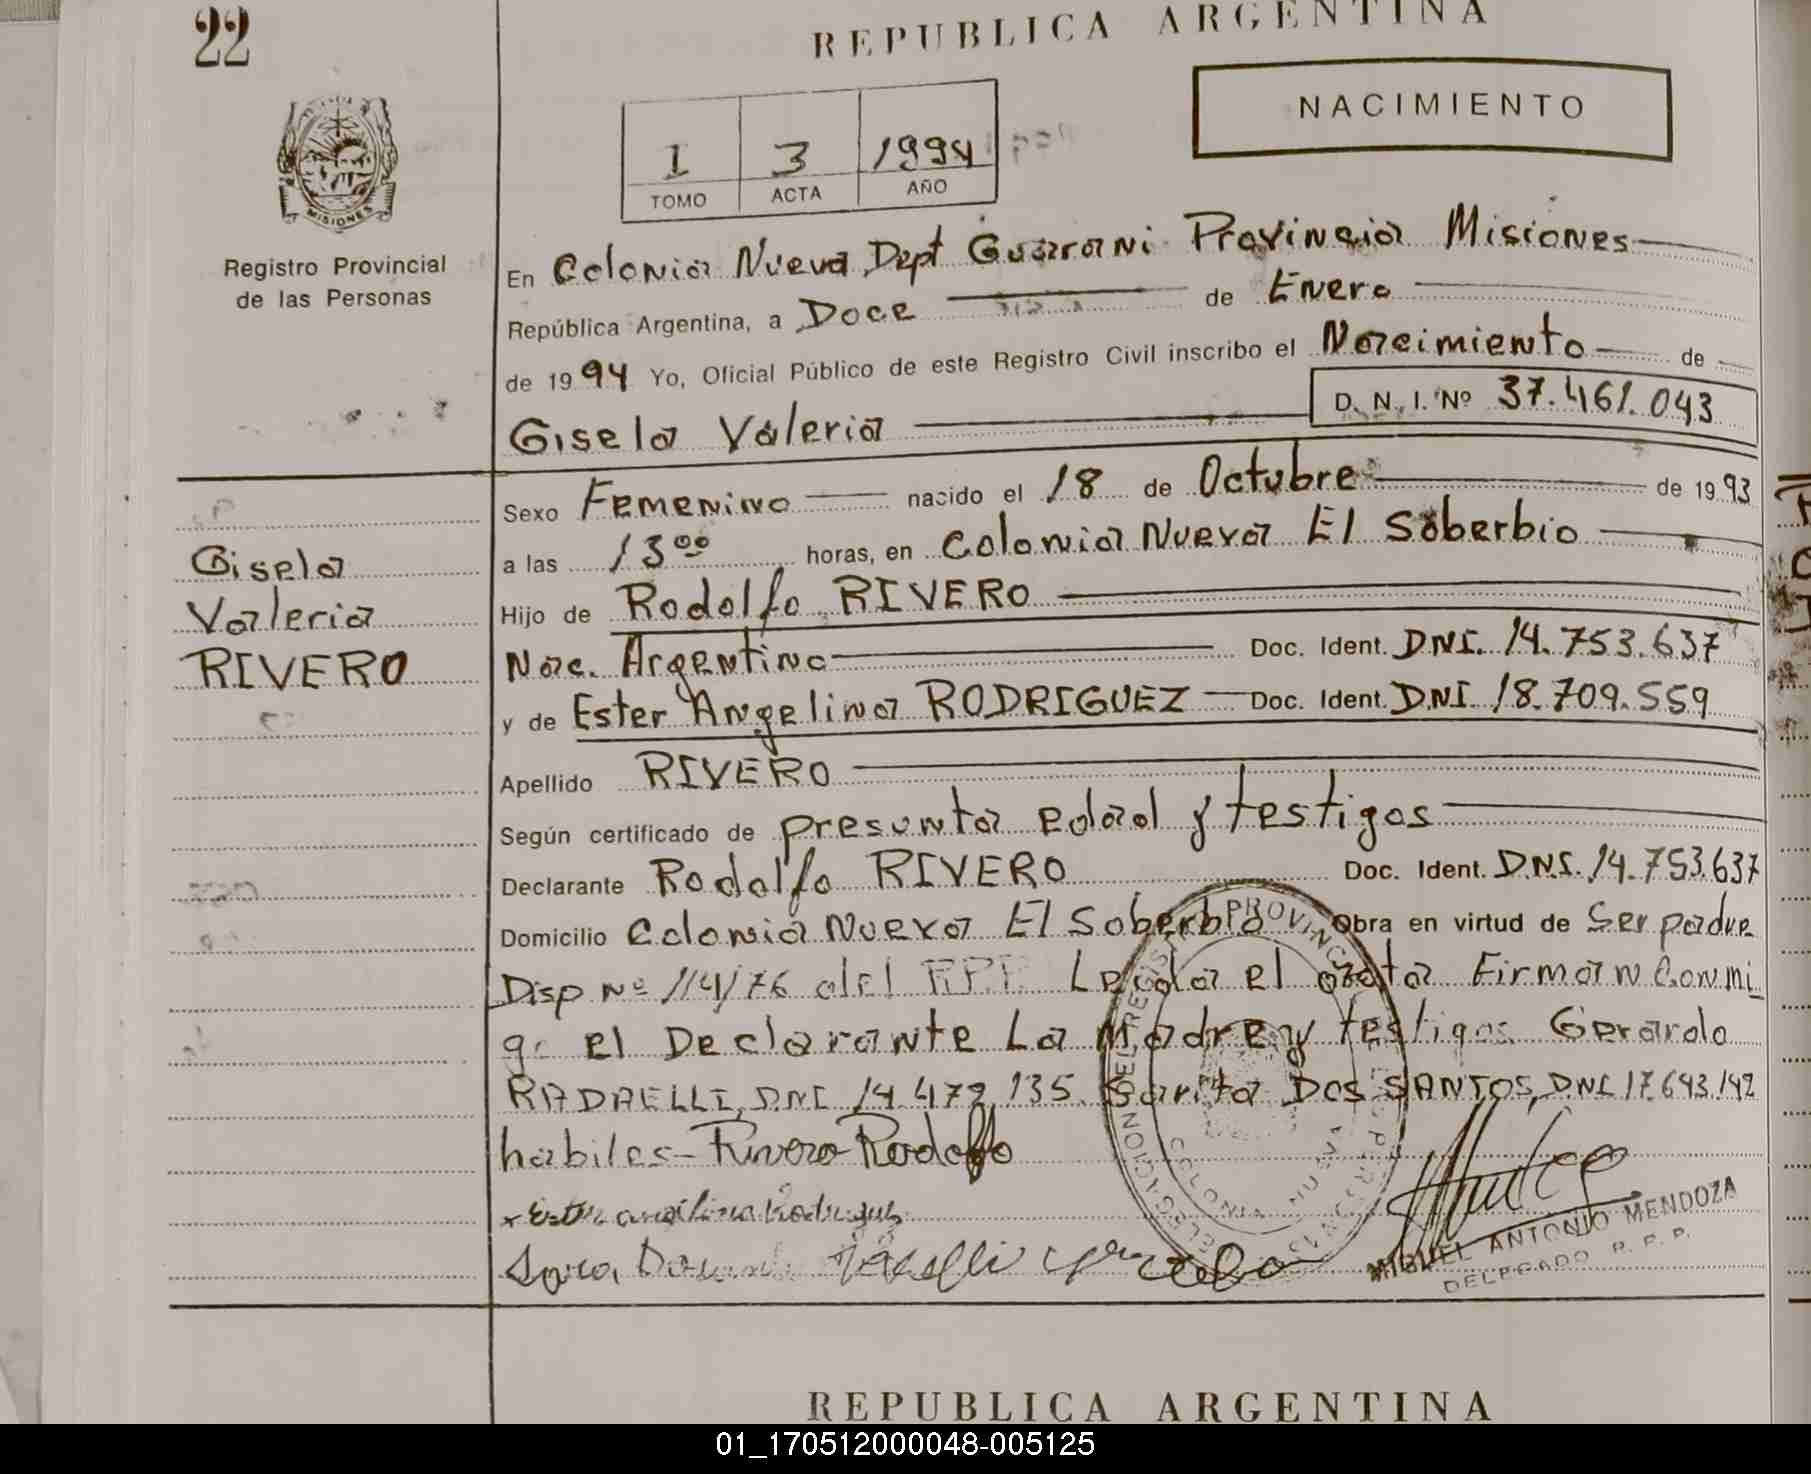 22
REPUBLICA ARGENTINA
NACIMIENTO
1 3 1994
TOMO ACTA AÑO
MISIONES
Registro Provincial
de las Personas
En Colonia Nueva Dept Guarani Provincia Misiones
República Argentina, a Doce de Enero
de 1994 Yo, Oficial Público de este Registro Civil inscribo el Nacimiento de
D. N. I. Nº 37.461.043
Gisela Valeria
Sexo Femenino nacido el 18 de Octubre de 1993
a las 13 00 horas, en Colonia Nueva El Soberbio
Hijo de Rodolfo RIVERO
Nac. Argentino Doc. Ident. DNI. 14.753.637
y de Ester Angelina RODRIGUEZ Doc. Ident. DNI 18.709.559
Apellido RIVERO
Gisela
Valeria
RIVERO
Según certificado de presunta edad y testigos
Declarante Rodolfo RIVERO Doc. Ident. D.N.I. 14.753.637
Domicilio Colonia Nueva El Soberbio Obra en virtud de Ser padre
Disp Nº 114/76 del R.P.P. Leida el acta Firman Conmi
go el Declarante La Madre y testigos Gerardo
RADAELLI, D.N.I 14.472.135 Sarita DOS SANTOS, DNI 17.643.142
habiles- Rivero Rodolfo
x Ester angelina Rodriguez
DELEGACION DEL REGISTRO PROVINCIAL
COLONIA NUEVA
MIGUEL ANTONIO MENDOZA
DELEGADO R. P. P.
REPUBLICA ARGENTINA
01_170512000048-005125